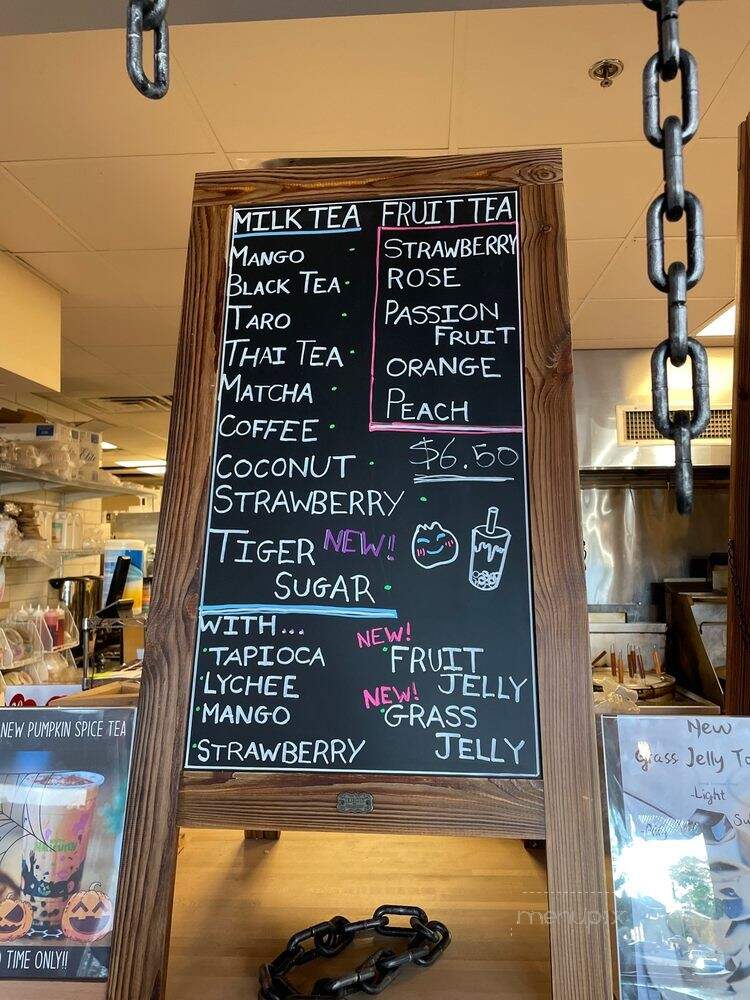 MILK TEA
MANGO
BLACK TEA
TARO
THAI TEA
MATCHA
COFFEE
COCONUT
STRAWBERRY
TIGER NEW!!
SUGAR
FRUIT TEA
STRAWBERRY
ROSE
PASSION
FRUIT
ORANGE
PEACH
$6.50
WITH...
TAPIOCA
LYCHEE
MANGO
STRAWBERRY
NEW!
FRUIT
JELLY
NEW!
GRASS
JELLY
NEW PUMPKIN SPICE TEA
TIME ONLY!!
New
Grass Jelly
-Light
menupix